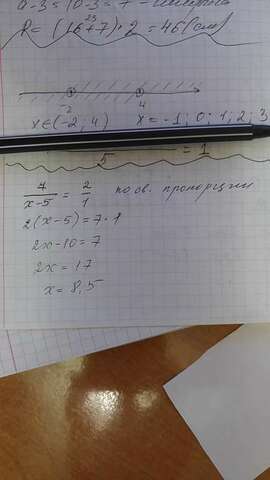 a-3=10-3=7 -
P=(16+7)·2=46(см)
23
-2 4
x∈(-2; 4) x=-1; 0; 1; 2; 3
5 = 1
7/x-5 = 2/1 по св. пропорции
2(x-5)=7·1
2x-10=7
2x=17
x=8,5